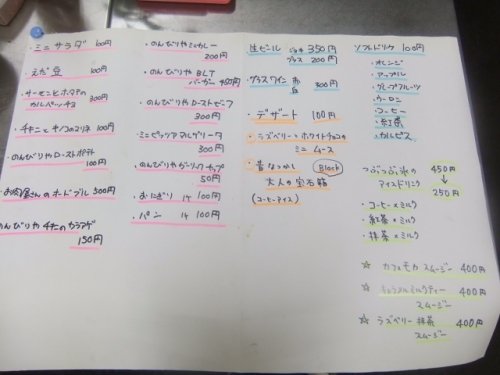 ・ミニ サラダ 100円
・えだ豆 100円
・サーモンとホタテの
カルパッチョ 300円
・チキンとキノコのマリネ 100円
・のんびりやローストポテト
100円
・お肉屋さんのオードブル 300円
のんびりや チキンのカラアゲ
150円
・のんびりやミニカレー
200円
・のんびりや BLT
バーガー
・のんびりやローストビーフ
300円
・ミニピッツァマルゲリータ
300円
・のんびりやガーリックチップ
50円
・おにぎり 1ケ 100円
・パン 1ケ 100円
生ビール ジョキ 350円
グラス 200円
・グラスワイン 赤
白 300円
・デザート 100円
・ラズベリーとホワイトチョコの
ミニ ムース
・昔なつかし Black
大人の宝石箱
(コーヒーアイス)
ソフトドリンク 100円
・オレンジ
・アップル
・グレープフルーツ
・ウーロン
・コーヒー
・紅茶
・カルピス
つぶつぶ氷の 450円
アイスドリンク ↓
250円
・コーヒー×ミルク
・紅茶×ミルク
・抹茶×ミルク
☆ カフェモカ スムージー 400円
☆ キャラメルミルクティー 400円
スムージー
☆ ラズベリー抹茶 400円
スムージー